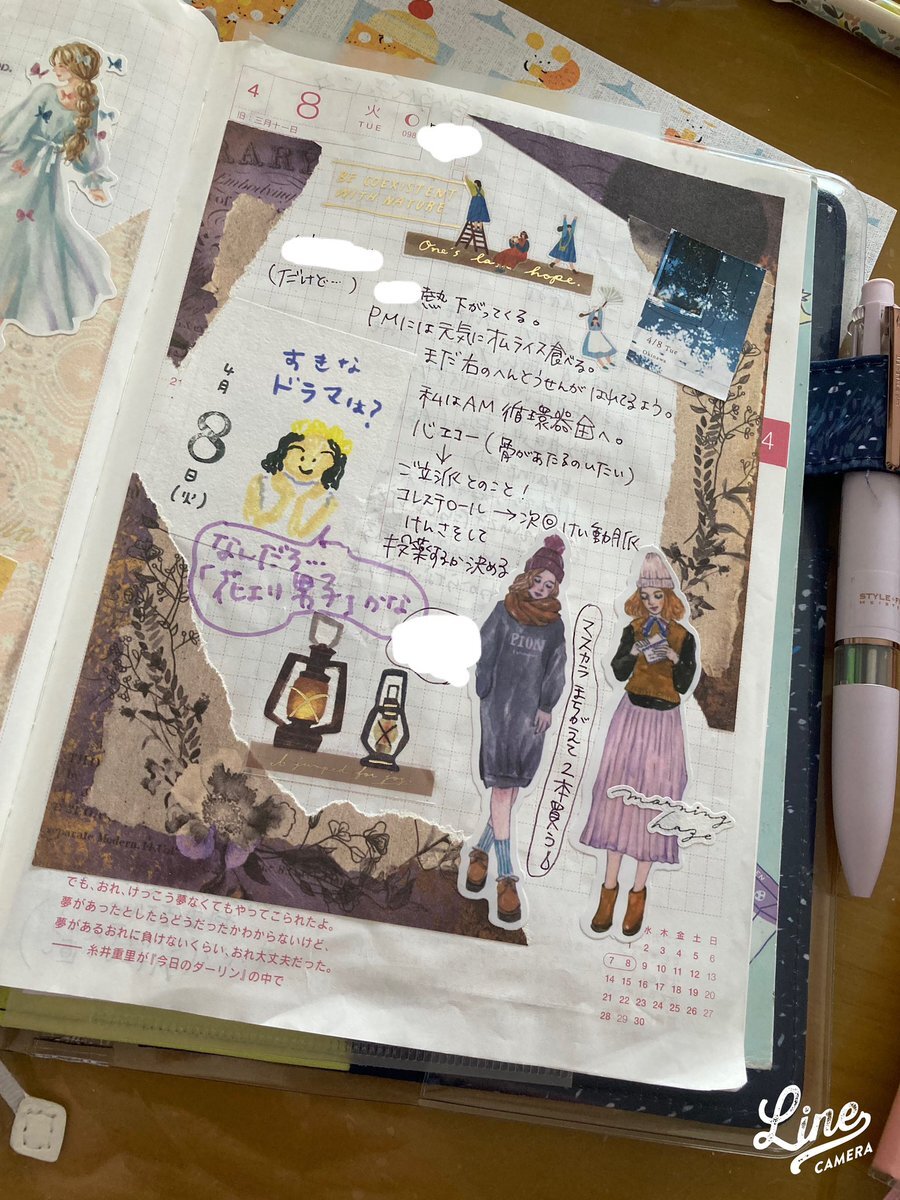 4 8 火
旧:三月十一日 TUE 098
BE COEXISTENT
WITH NATURE
One's la hope.
(だけど…)
熱 下がってくる。
PMには元気にオムライス食べる。
まだ右のへんとうせんが はれてるよう。
私はAM 循環器科へ。
心エコー(骨があたるのいたい)
↓
ご立派とのこと!
コレステロール→次回 けい動脈
けんさをして
投薬するか決める
4/8 Tue
Okinawa
すきな
ドラマは?
4月
8
日
(火)
なんだろ…
「花より男子」かな
マスカラ まちがえて 2本買う
morning
haze
Embodying
Separate Modern.
PION
4
STYLE
でも、おれ、けっこう夢なくてもやってこられたよ。
夢があったとしたらどうだったかわからないけど、
夢があるおれに負けないくらい、おれ大丈夫だった。
── 糸井重里が『今日のダーリン』の中で
水 木 金 土 日
2 3 4 5 6
7 8 9 10 11 12 13
14 15 16 17 18 19 20
21 22 23 24 25 26 27
28 29 30
Line
CAMERA